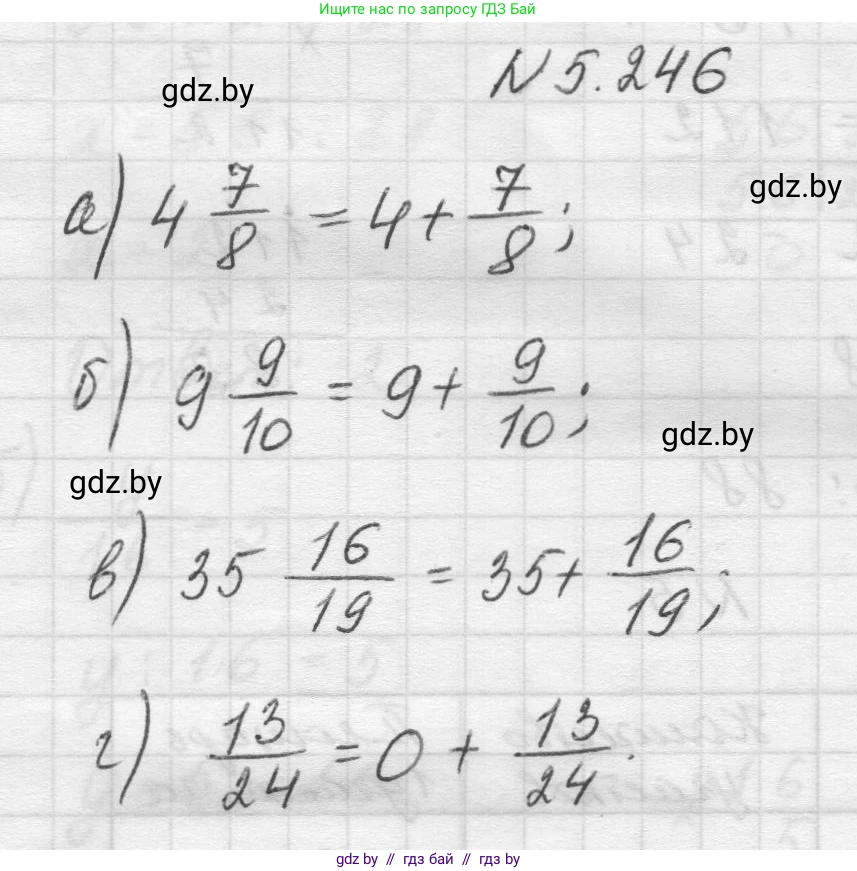 Ищите нас по запросу ГДЗ Бай
N 5.246
gdz.by
а) 4 7/8 = 4 + 7/8;
gdz.by
б) 9 9/10 = 9 + 9/10;
gdz.by
gdz.by
в) 35 16/19 = 35 + 16/19;
г) 13/24 = 0 + 13/24.
gdz by // гдз бай // гдз by